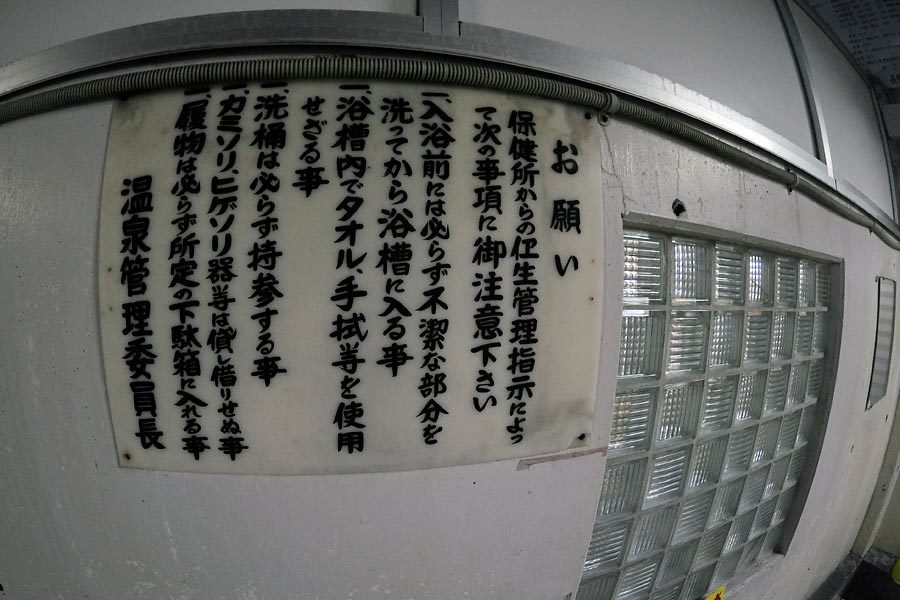 お願い
保健所からの卫生管理指示によっ
て次の事項に御注意下さい
一、入浴前には必らず不潔な部分を
洗ってから浴槽に入る事
一、浴槽内でタオル、手拭等を使用
せざる事
一、洗桶は必らず持参する事
一、カミソリ、ヒゲソリ器等は貸し借りせぬ事
一、履物は必らず所定の下駄箱に入れる事
温泉管理委員長